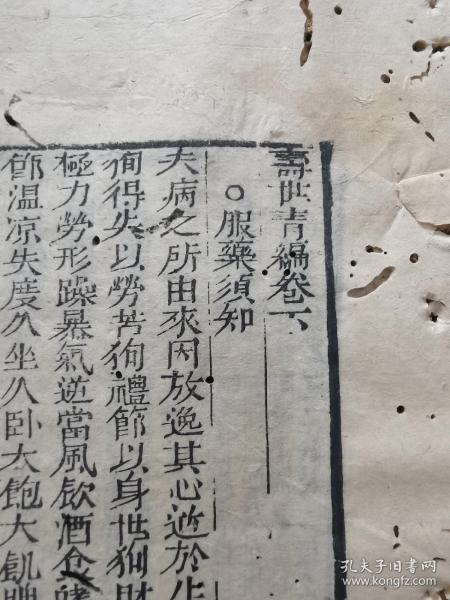 壽世青編卷下
○服藥須知
夫病之所由來因放逸其心逆於生
徇得失以勞苦徇禮節以身世徇財
極力勞形躁暴氣逆當風飲酒食
節温凉失度久坐久卧大飽大飢
孔夫子旧书网
www.kongfz.com